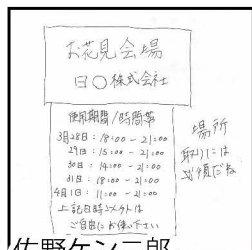 お花見会場
日○株式会社
使用期間/時間等
3月28日：18:00 ～ 21:00
29日：15:00 ～ 21:00
30日：14:00 ～ 21:00
31日：18:00 ～ 21:00
4月1日：11:00 ～ 21:00
上記日時以外は
ご自由にお使い下さい
場所
取りには
必須だね
佐野ケン二郎